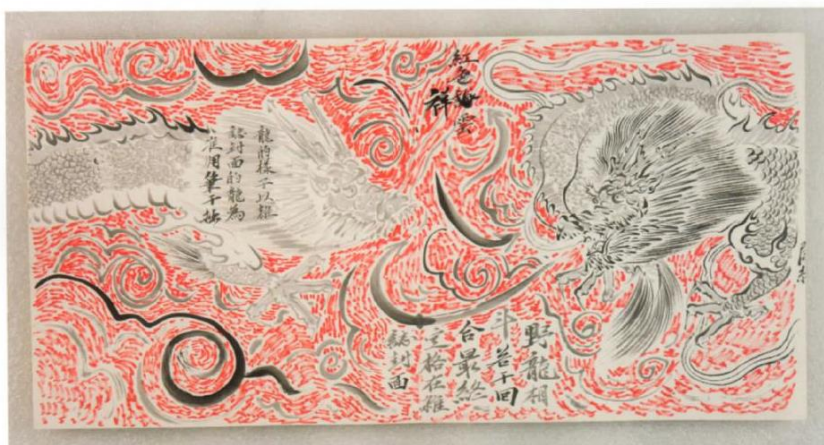 紅色祥雲
龍的樣子以雜
誌封面的龍為
准用筆干
野龍相
斗若干回
合最終
定格在雜
誌封面